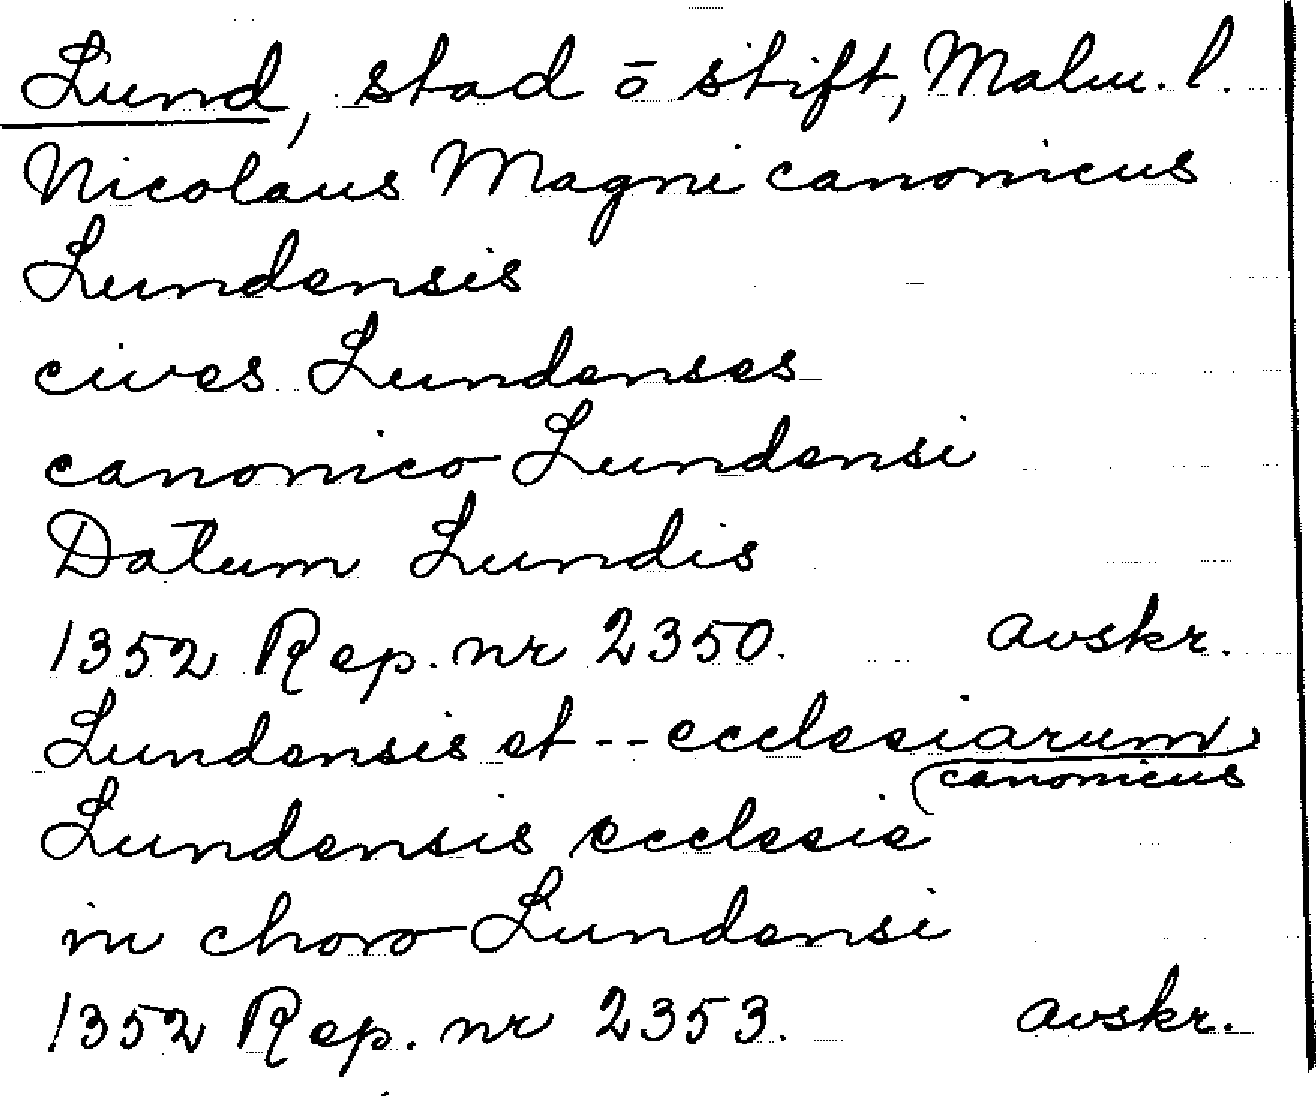 Lund, stad ō stift, Malm. l.
Nicolaus Magni canonicus
Lundensis
cives Lundenses
canonico Lundensi
Datum Lundis
1352 Rep. nr 2350. avskr.
Lundensis et -- ecclesiarum
canonicus
Lundensis ecclesie
in choro Lundensi
1352 Rep. nr 2353. avskr.